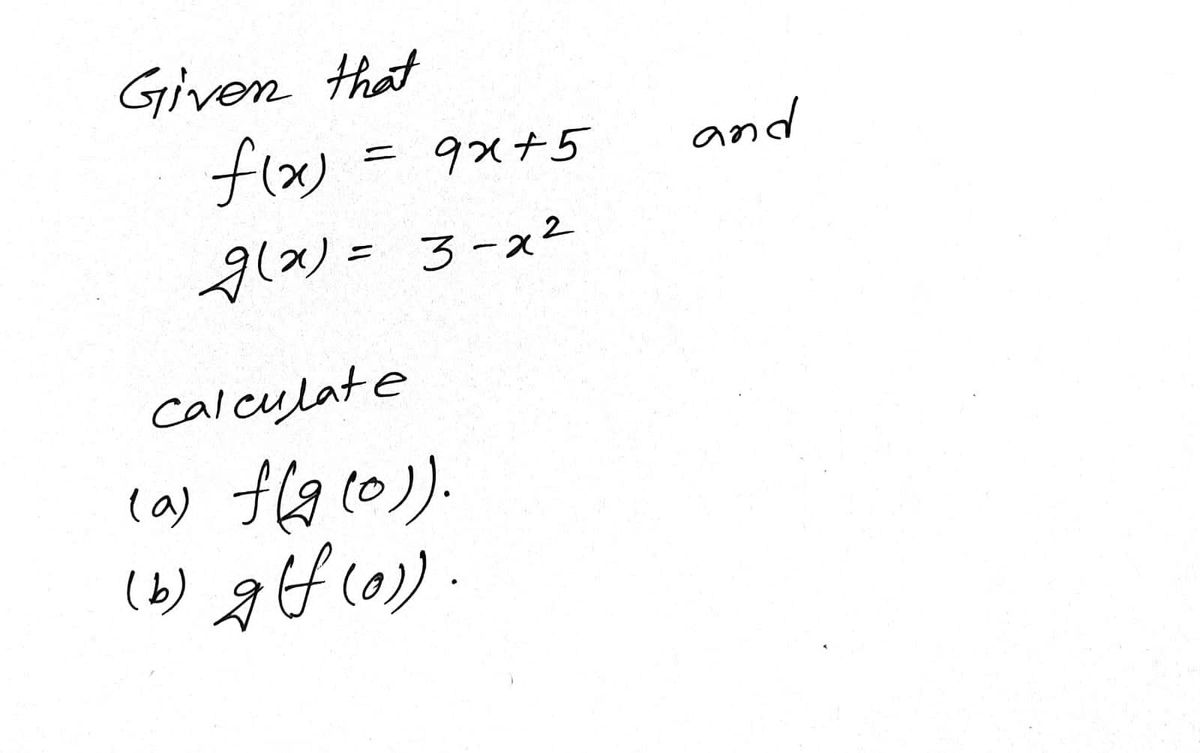 Given that
f(x) = 9x+5 and
g(x) = 3-x²
calculate
(a) f(g(0)).
(b) g(f(0)).